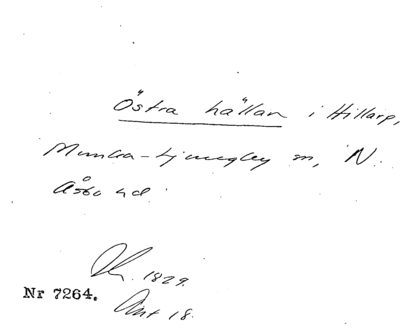 Östra hällan i Hillarp,
Munka-Ljungby sn, N.
Åsbo hd.
1829.
Nr 7264.
18.